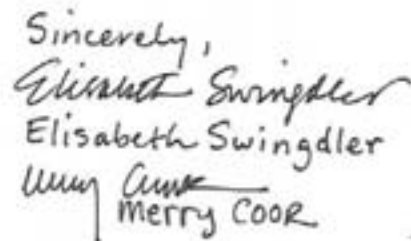 Sincerely,
Elisabeth Swingdler
Elisabeth Swingdler
Merry COOR